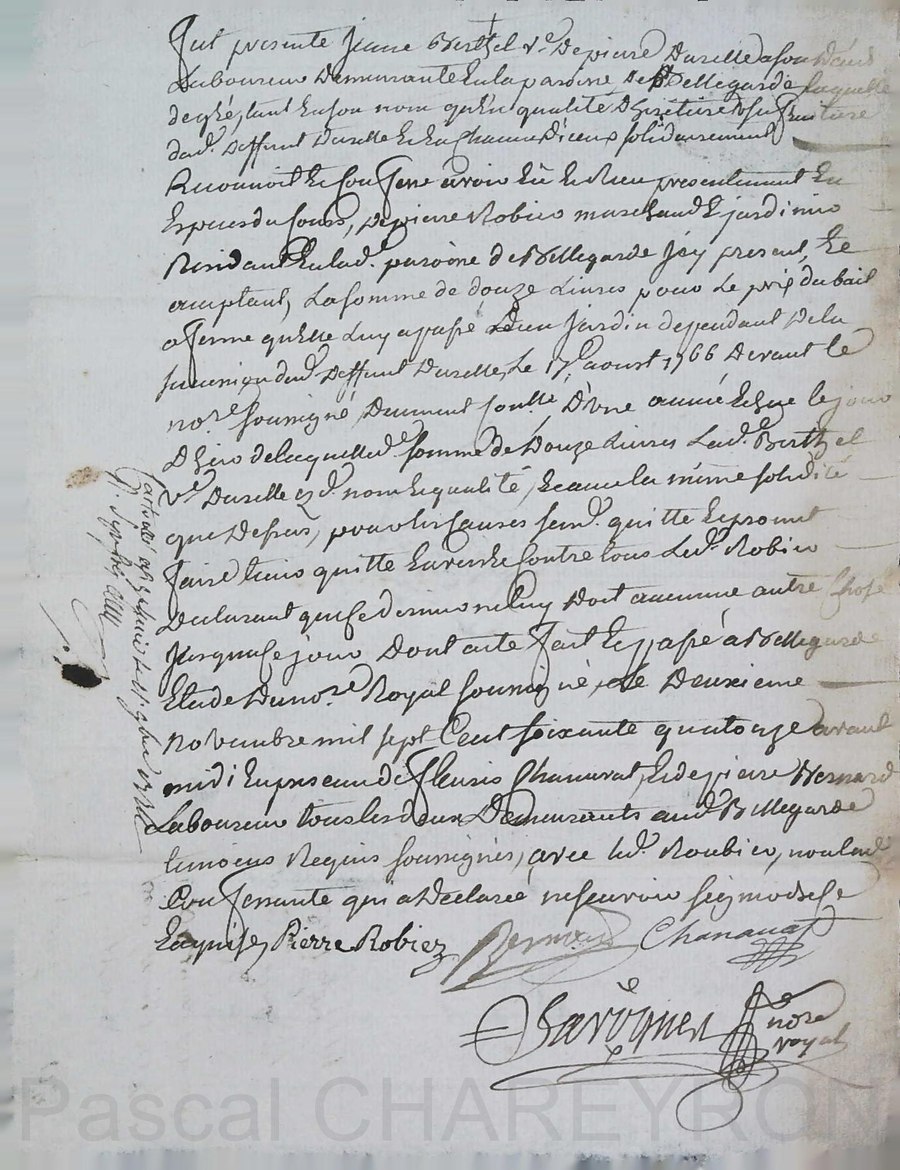 fut presente Jeanne Berthel ve De pierre Durelle
Laboureur Demeurante En la paroisse De Bellegarde laquelle
de gré, tant En son nom qu'En qualité
dud. Deffunt Durelle & En Chacune D'iceux solidairement
Reconnoit & Confesse avoir Eû & Reçu presentement En
Especes du Cours, De pierre Robier marchand & jardinier
Residant En lad. paroisse de Bellegarde Jcy present, &
acceptant, La somme de douze Livres pour Le prix du bail
a ferme qu'elle Luy a passé D'un Jardin dependant De la
succession dud. Deffunt Durelle, Le 17e. aoust 1766 Devant le
nore. soussigné, Deument , D'une année Echue le jour
D'hier de laquelle de. somme de Douze Livres Lad. Berthel
ve. Durelle nom & qualité, & avec la même solidité
que Dessus, pour les Causes quitte & promet
faire tenir quitte Envers & Contre tous Led. Robier
Declarant qu'il ne luy Doit aucune autre Chose
Jusqu'a Ce jour Dont acte fait & passé a Bellegarde
Etude Du nore. Royal soussigné, Le Deuxieme
Novembre mil sept Cent soixante quatorze avant
midi En presence de fleuris Chanavat, & de pierre Bernard
Laboureur tous les deux Demeurants aud. Bellegarde
temoins Requis soussignés, avec led. Roubier, non lad.
Confessante qui a Declaree ne scavoir signer de Ce
Enquise, Pierre Robier Bernard Chanavat
nore
royal
Pascal CHAREYRON